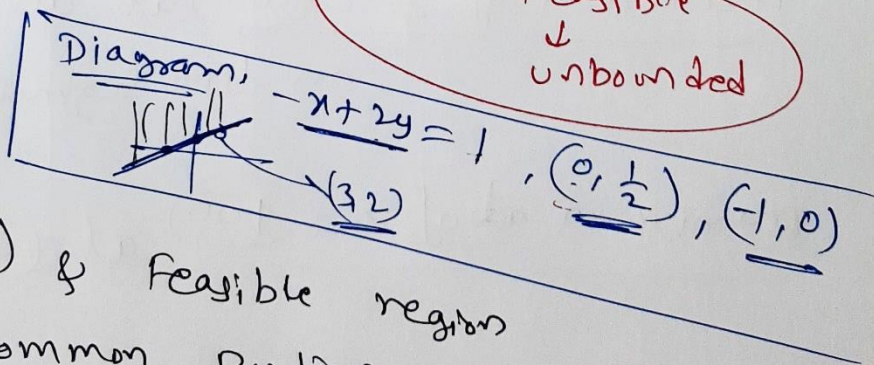 ↓
unbounded
Diagram, -x + 2y = 1, (0, 1/2), (-1, 0)
(3,2)
& Feasible region